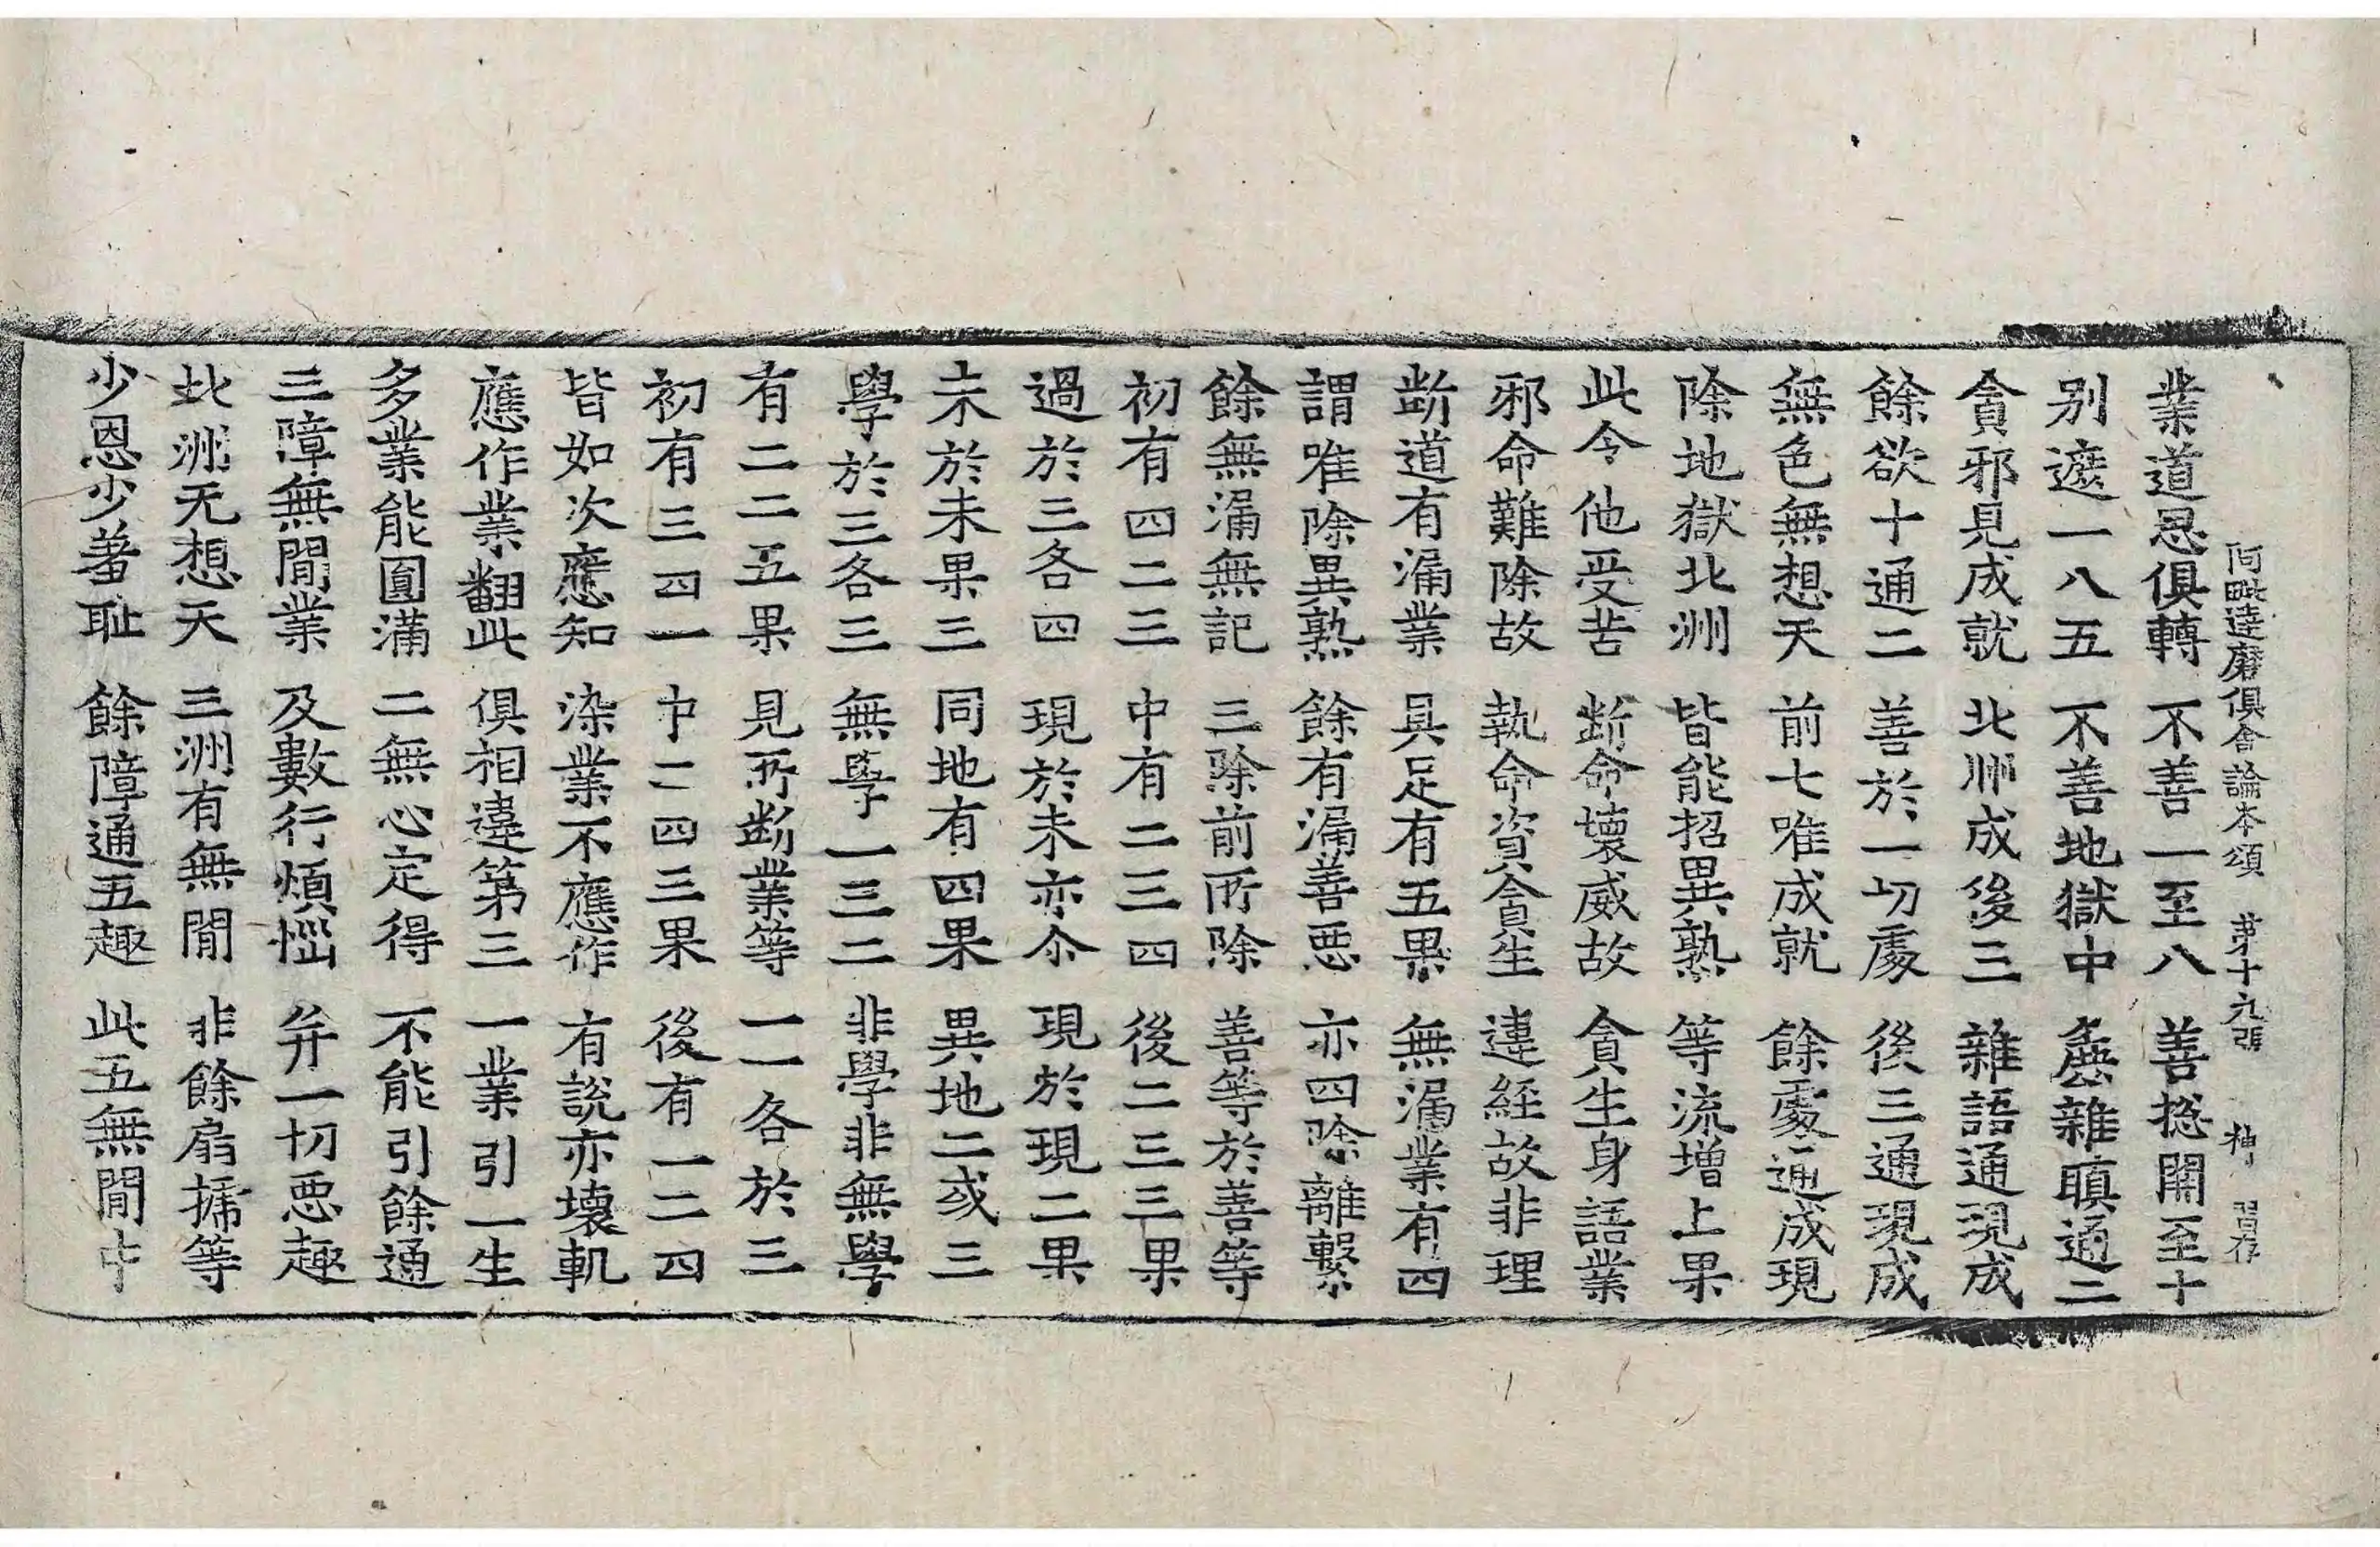 阿毗達磨俱舍論本頌 第十九張 神 習存
業道思俱轉 不善一至八 善捴開至十
別遮一八五 不善地獄中 麁雜瞋通二
貪邪見成就 北洲成後三 雜語通現成
餘欲十通二 善於一切處 後三通現成
無色無想天 前七唯成就 餘處通成現
除地獄北洲 皆能招異熟 等流增上果
此令他受苦 断命壞威故 貪生身語業
邪命難除故 執命資貪生 違經故非理
断道有漏業 具足有五果 無漏業有四
謂唯除異熟 餘有漏善惡 亦四除離繫
餘無漏無記 三除前所除 善等於善等
初有四二三 中有二三四 後二三三果
過於三各四 現於未亦尒 現於現二果
未於未果三 同地有四果 異地二或三
學於三各三 無學一三二 非學非無學
有二二五果 見所断業等 一一各於三
初有三四一 中二四三果 後有一二四
皆如次應知 染業不應作 有說亦壞軌
應作業翻此 俱相違第三 一業引一生
多業能圓滿 二無心定得 不能引餘通
三障無間業 及數行煩惱 并一切惡趣
北洲无想天 三洲有無間 非餘扇搋等
少恩少羞耻 餘障通五趣 此五無間中